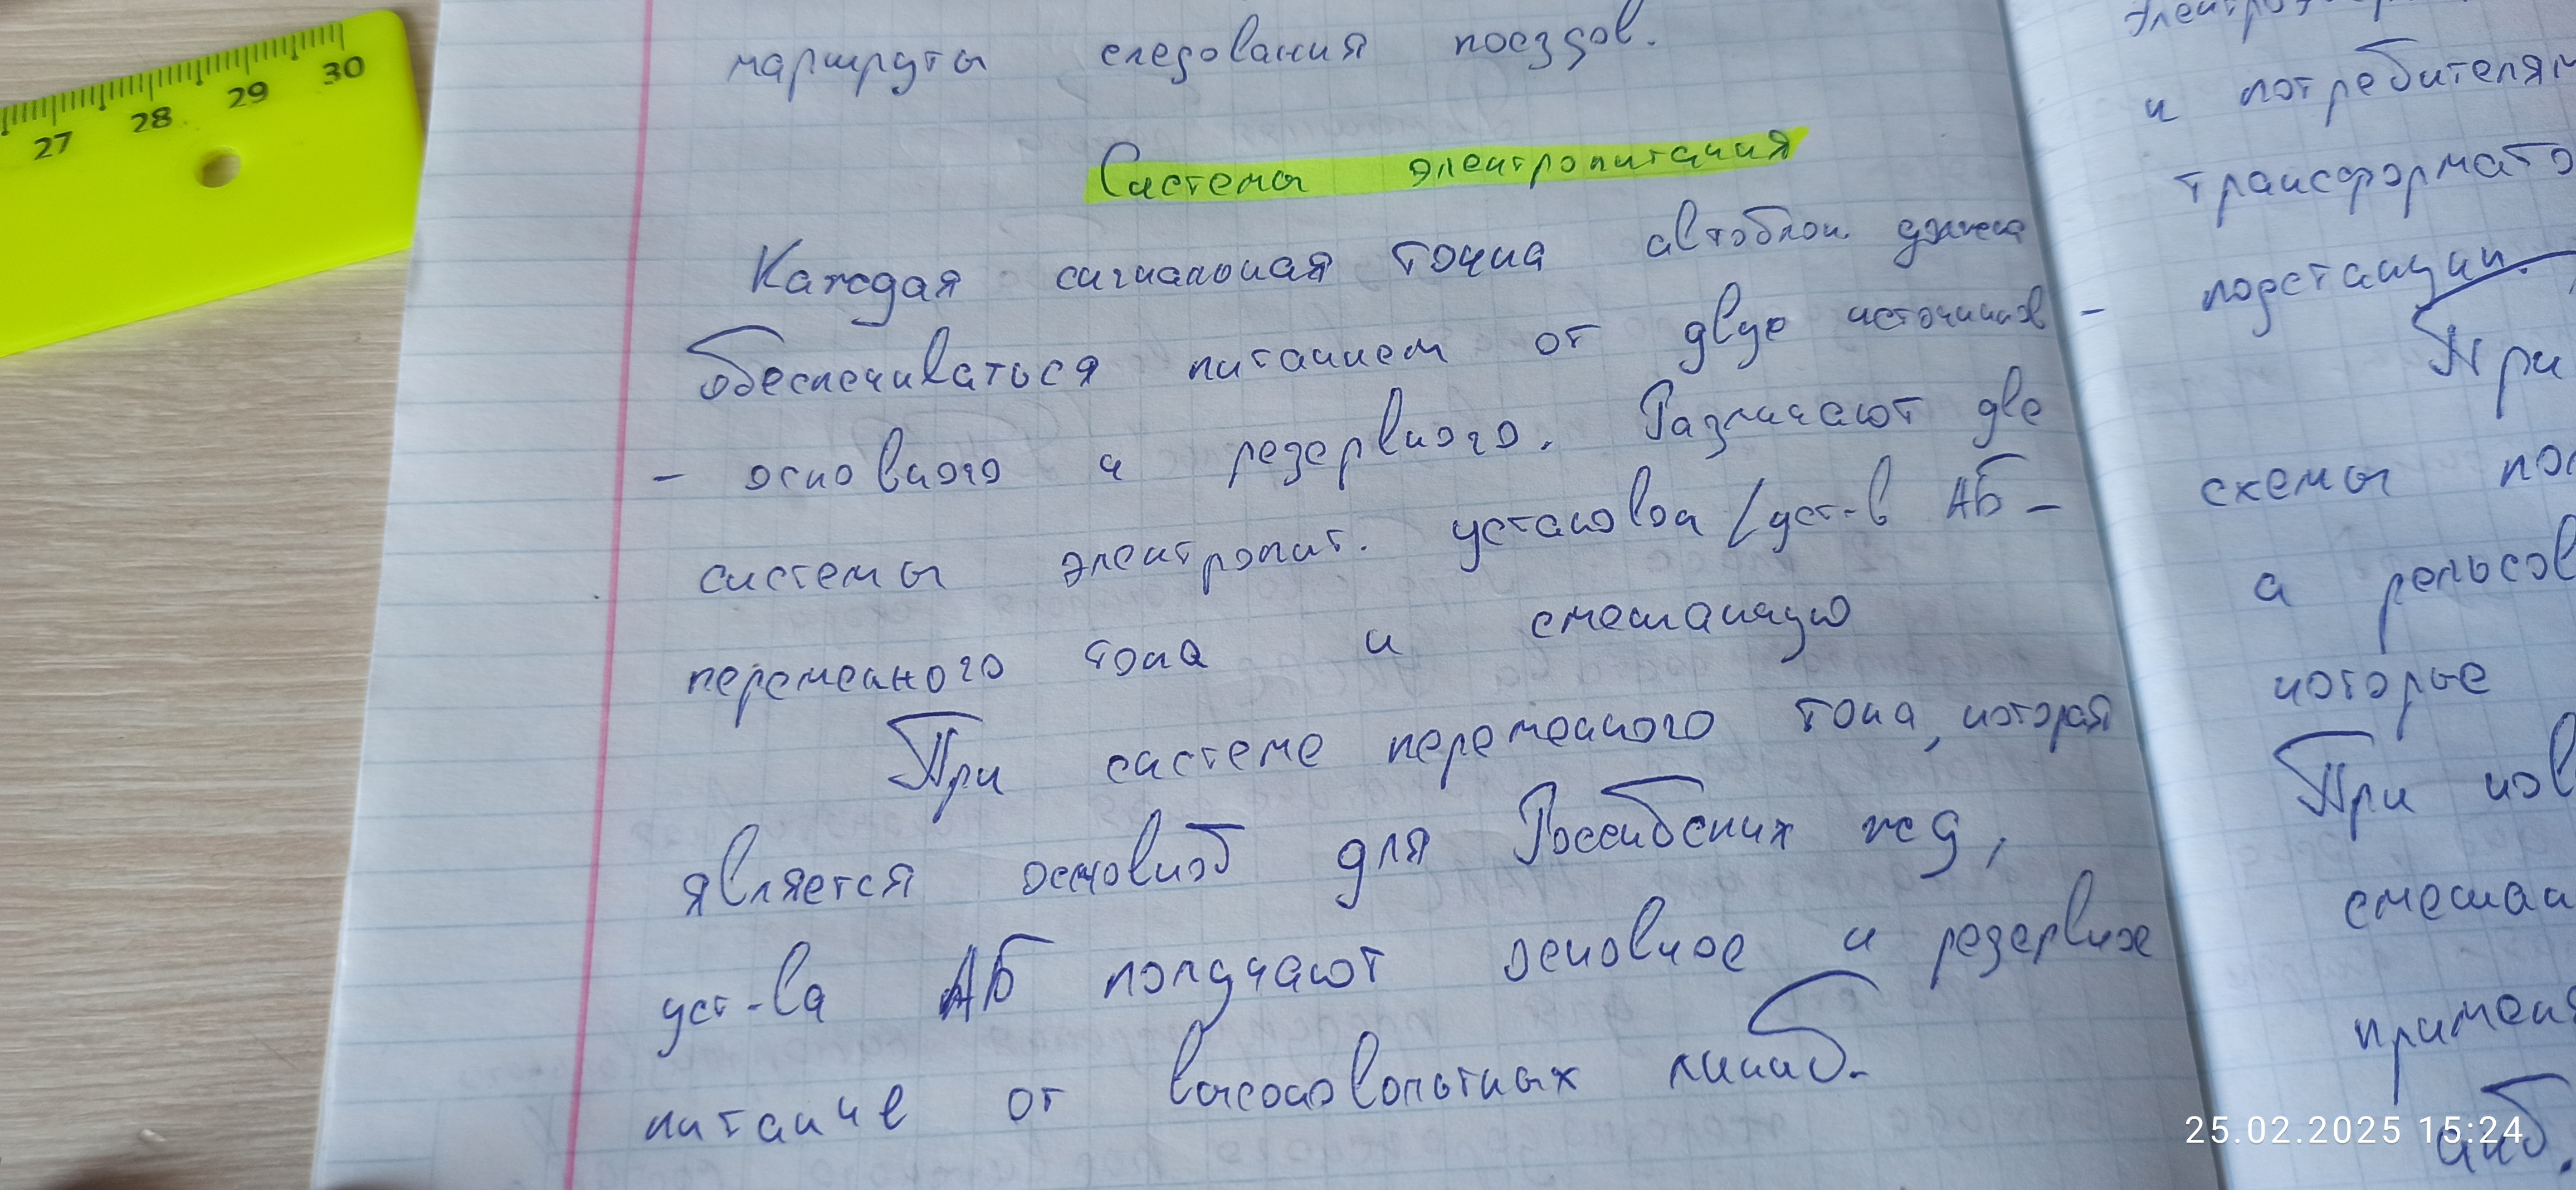 маршруты следования поездов.
Системы электропитания
Каждая сигнальная точка автоблок. должна
обеспечиваться питанием от двух источников -
- основного и резервного. Различают две
системы электропит. установок / уст-в АБ -
переменного тока и смешанную
При системе переменного тока, которая
является основной для Российских жд,
уст-ва АБ получают основное и резервное
питание от высоковольтных линий.
и потребителям
трансформато
подстанции.
При
схемы по
а рельсов
которые
При нов
смешан
применя
ний.
27 28 29 30
25.02.2025 15:24